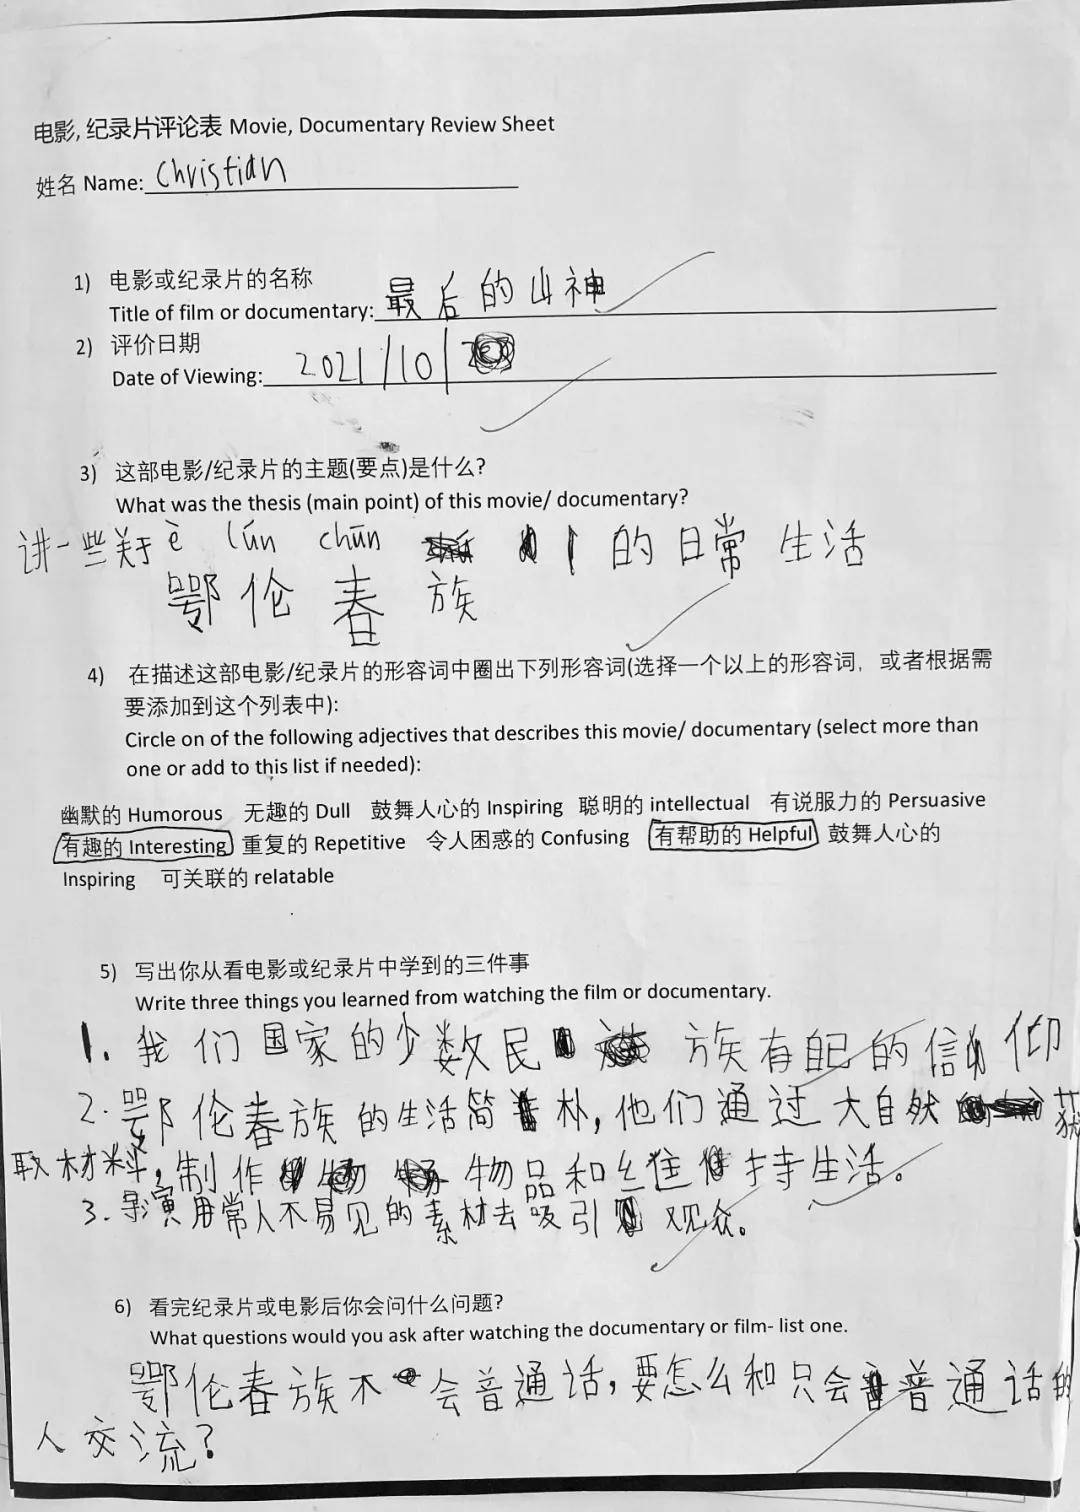 电影, 纪录片评论表 Movie, Documentary Review Sheet
姓名 Name: Christian
1) 电影或纪录片的名称
Title of film or documentary: 最后的山神
2) 评价日期
Date of Viewing: 2021/10/
3) 这部电影/纪录片的主题(要点)是什么?
What was the thesis (main point) of this movie/ documentary?
讲一些关于 è lún chūn 的日常生活
鄂伦春族
4) 在描述这部电影/纪录片的形容词中圈出下列形容词(选择一个以上的形容词，或者根据需
要添加到这个列表中):
Circle on of the following adjectives that describes this movie/ documentary (select more than
one or add to this list if needed):
幽默的 Humorous 无趣的 Dull 鼓舞人心的 Inspiring 聪明的 intellectual 有说服力的 Persuasive
有趣的 Interesting 重复的 Repetitive 令人困惑的 Confusing 有帮助的 Helpful 鼓舞人心的
Inspiring 可关联的 relatable
5) 写出你从看电影或纪录片中学到的三件事
Write three things you learned from watching the film or documentary.
1. 我们国家的少数民族有自己的信仰
2. 鄂伦春族的生活简朴, 他们通过大自然获
取材料, 制作物品和维持生活。
3. 导演用常人不易见的素材去吸引观众。
6) 看完纪录片或电影后你会问什么问题?
What questions would you ask after watching the documentary or film- list one.
鄂伦春族不会普通话, 要怎么和只会普通话的
人交流?